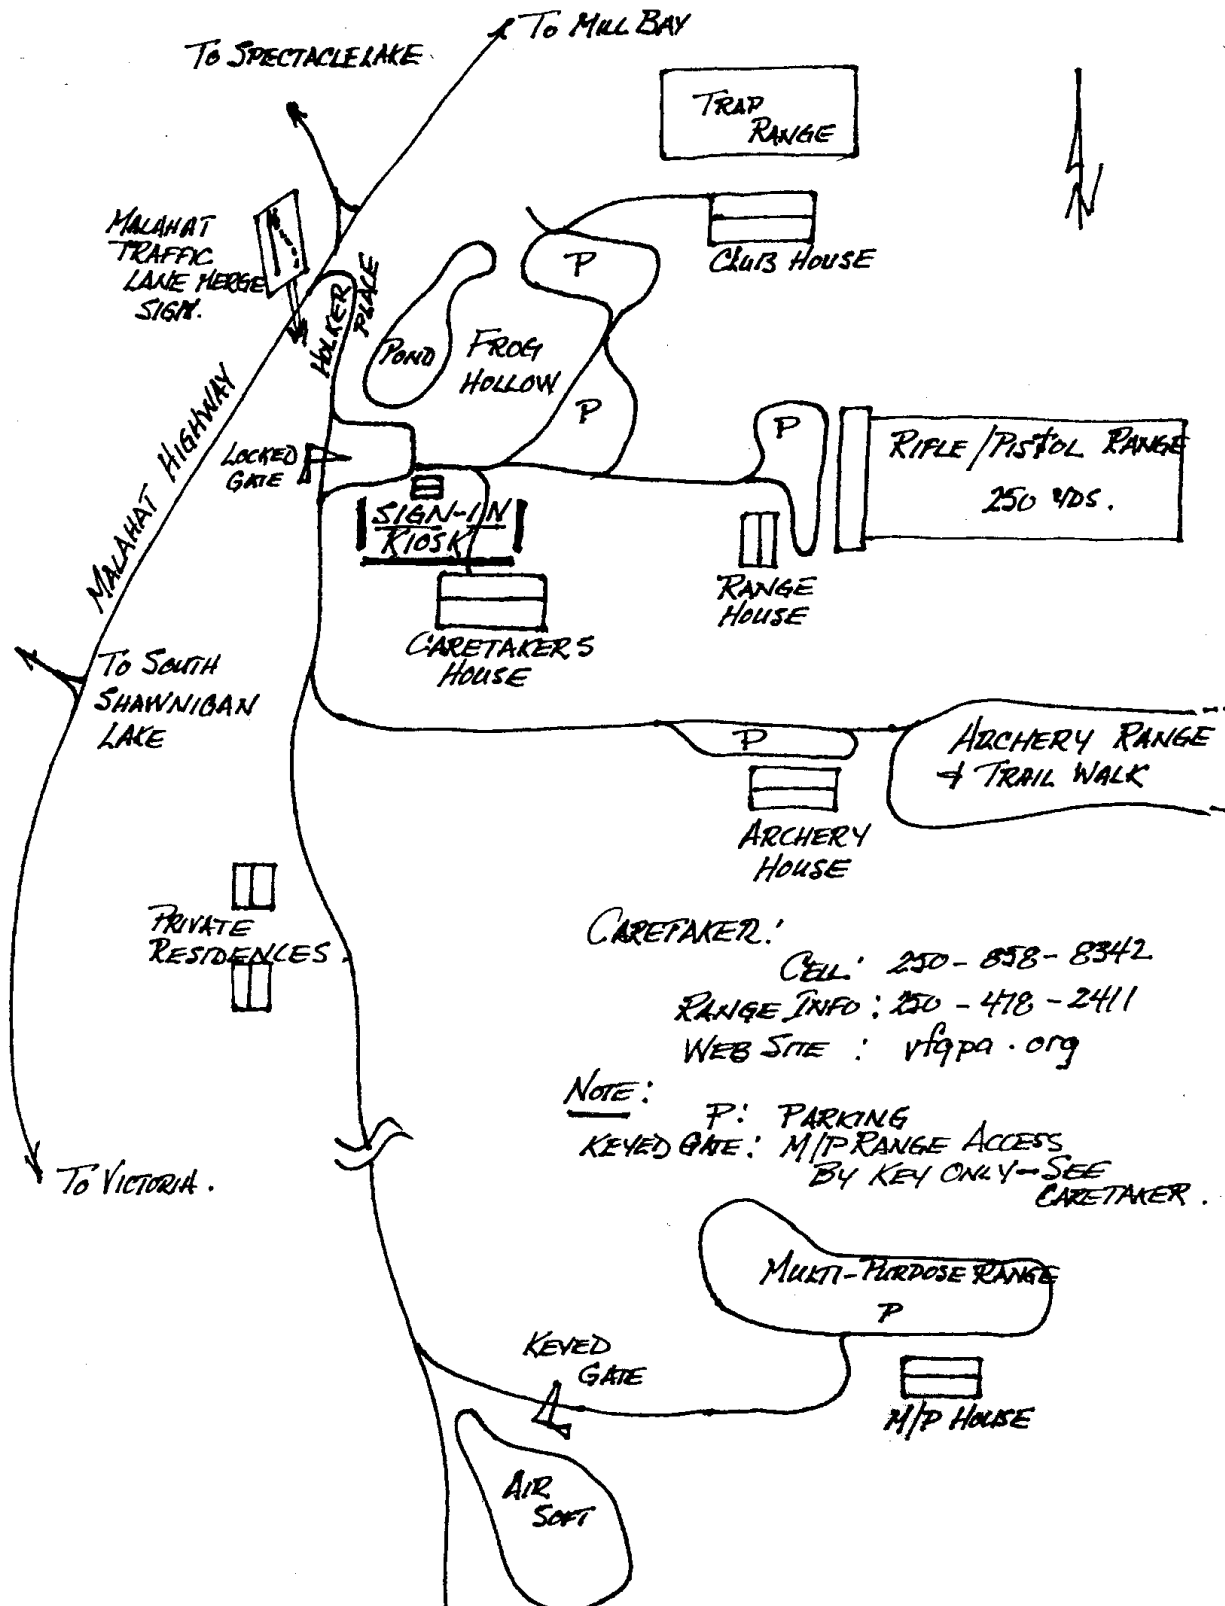 To MILL BAY
To SPECTACLE LAKE
TRAP
RANGE
N
MALAHAT
TRAFFIC
LANE MERGE
SIGN.
HOLKER
PLACE
P
CLUB HOUSE
POND
FROG
HOLLOW
P
P
RIFLE/PISTOL RANGE
250 YDS.
MALAHAT HIGHWAY
LOCKED
GATE
SIGN-IN
KIOSK
RANGE
HOUSE
CARETAKERS
HOUSE
To SOUTH
SHAWNIGAN
LAKE
P
ARCHERY RANGE
& TRAIL WALK
ARCHERY
HOUSE
PRIVATE
RESIDENCES
CARETAKER:
CELL: 250-858-8342
RANGE INFO: 250-478-2411
WEB SITE : vfgpa.org
NOTE:
P: PARKING
KEYED GATE: M/P RANGE ACCESS
BY KEY ONLY-SEE
CARETAKER.
To VICTORIA.
MULTI-PURPOSE RANGE
P
KEYED
GATE
M/P HOUSE
AIR
SOFT